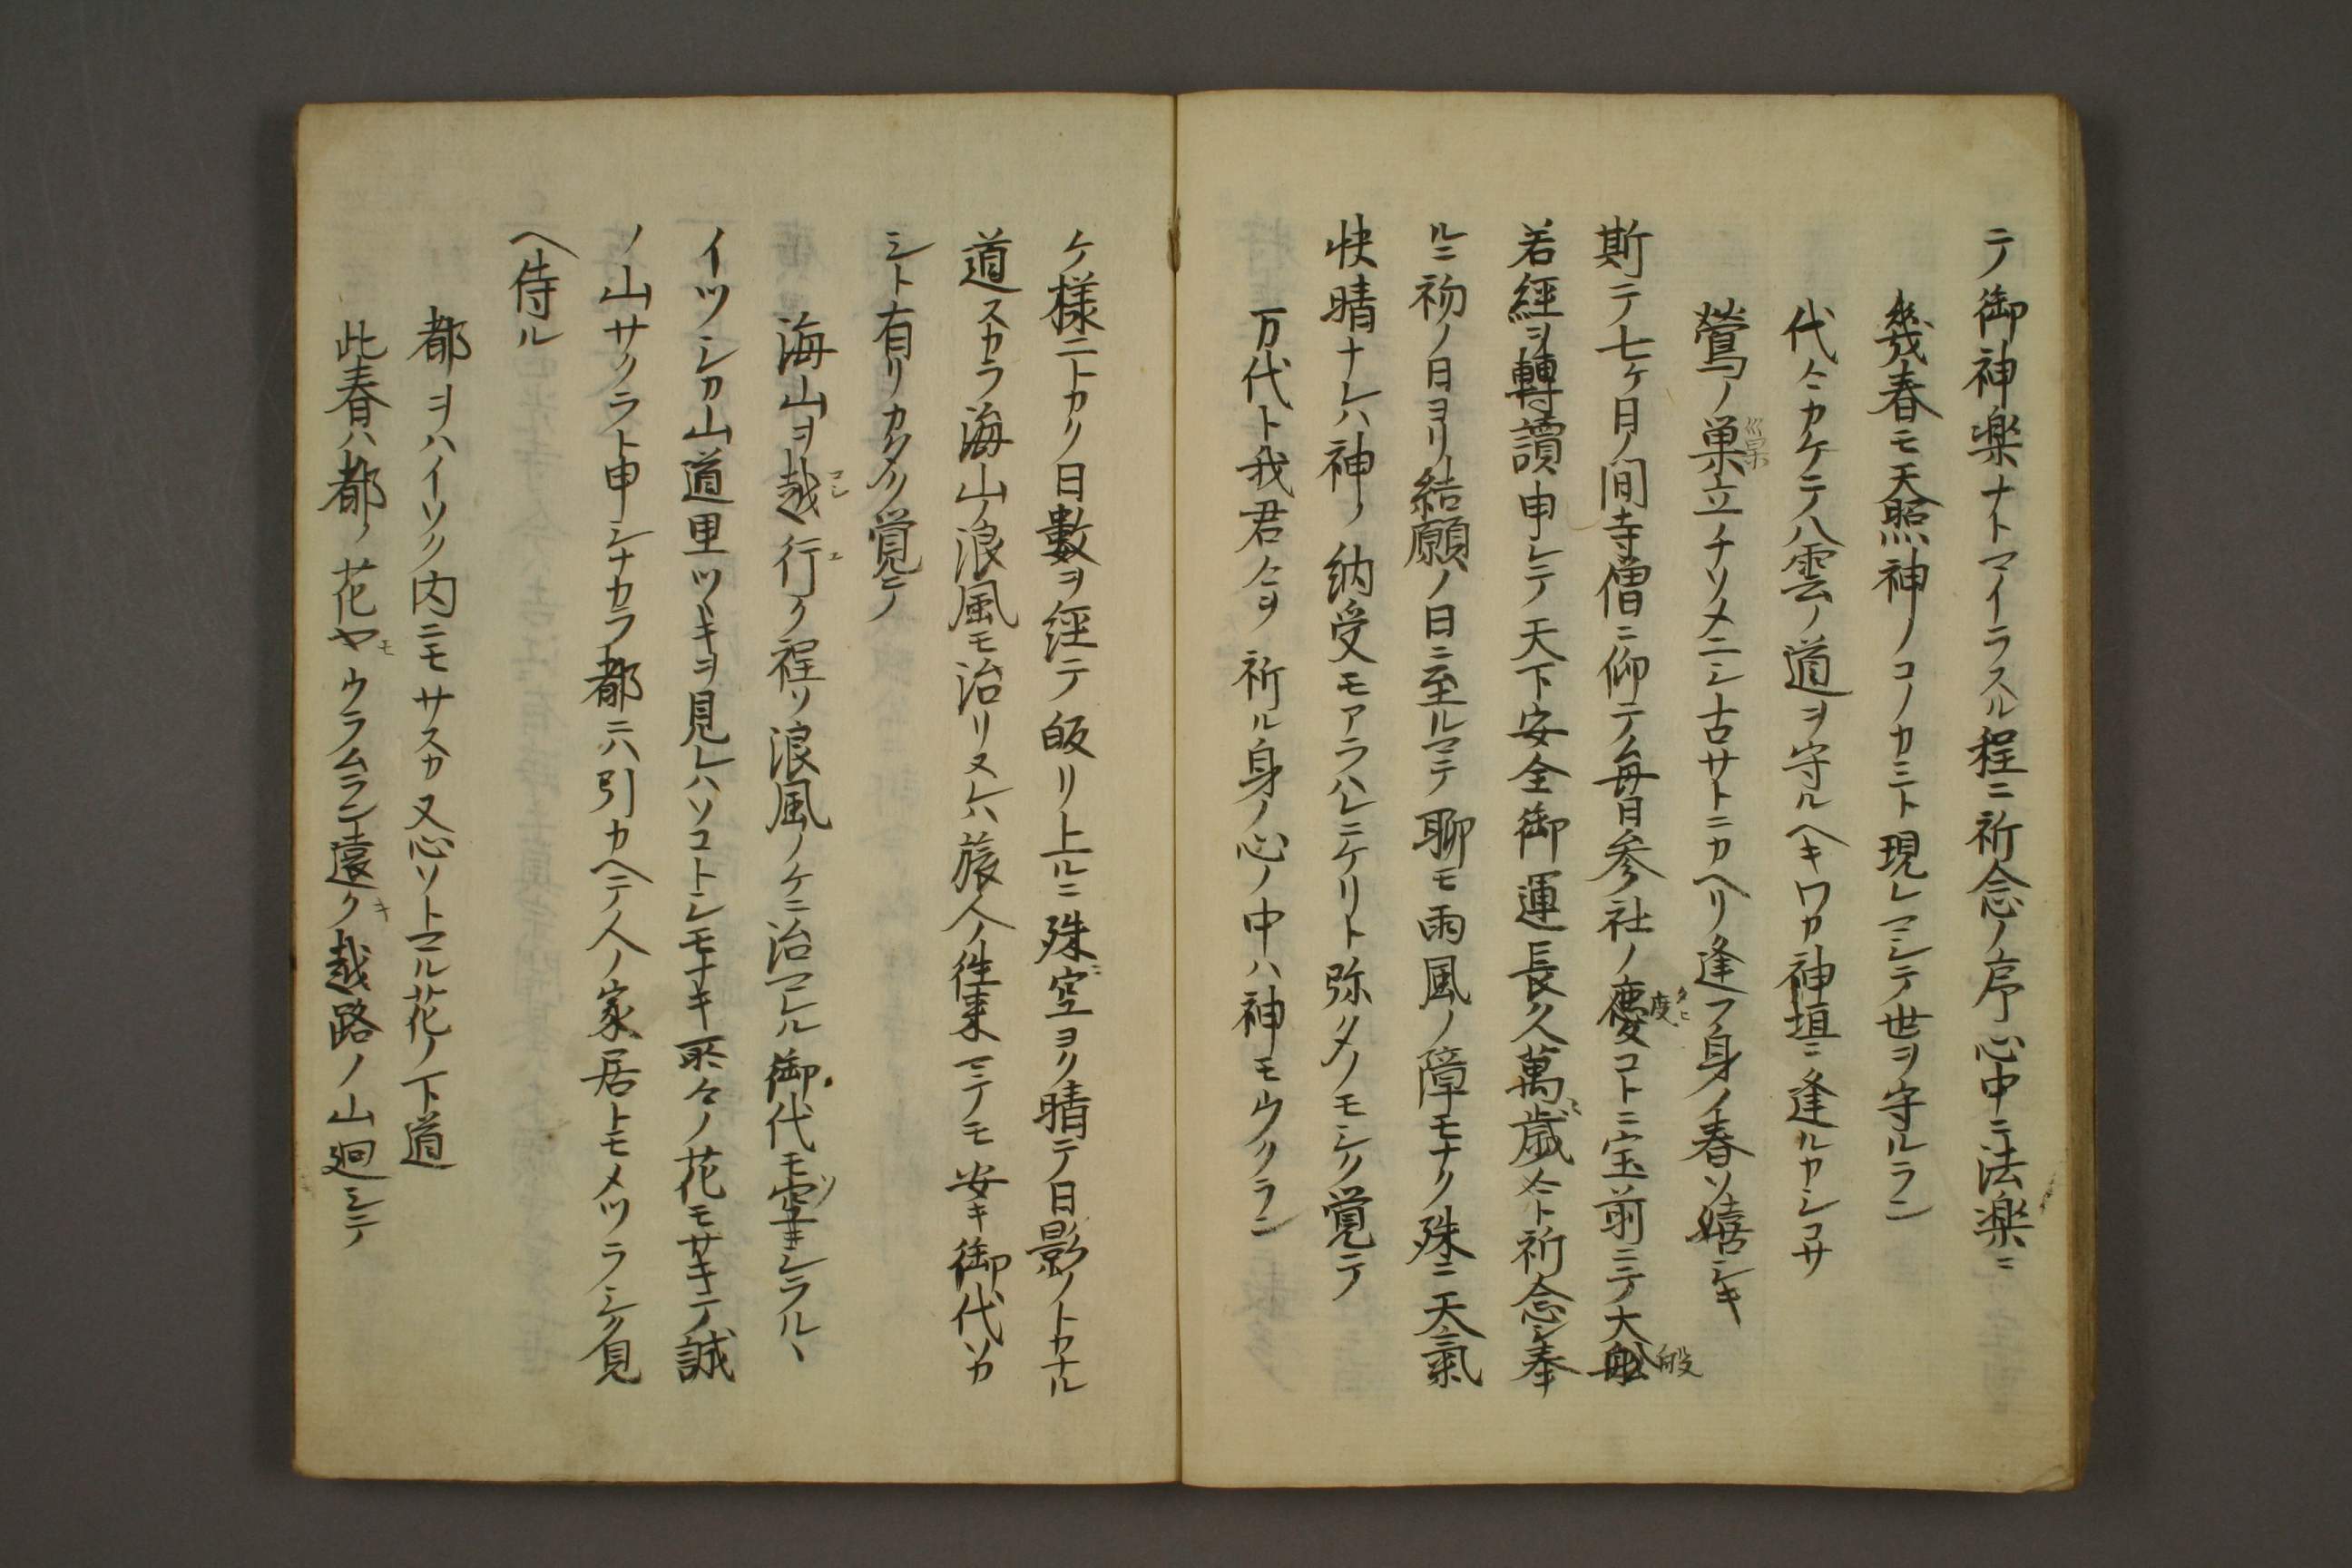 テ御神楽ナトマイラスル程ニ祈念ノ序心中ニ法楽ニ
幾春モ天照神ノコノカミト現レマシテ世ヲ守ルラン
代々ニカケテ八雲ノ道ヲ守ルヘキワカ神垣ニ逢ルカシコサ
鶯ノ巣立チソメニシ古サトニカヘリ逢フ身ノ春ソ嬉シキ
斯テ七ケ日ノ間寺僧ニ仰テ毎日参社ノ慶コトニ宝前ニテ大船
度タヒ
般
若経ヲ轉讀申シテ天下安全御運長久萬歳々ト祈念シ奉
ルニ初ノ日ヨリ結願ノ日ニ至ルマテ聊モ雨風ノ障モナク殊ニ天氣
快晴ナレハ神ノ納受モアラハレニケリト弥タノモシク覚ニテ
万代ト我君々ヲ祈ル身ノ心ノ中ハ神モウクラン
ケ様ニトカク日數ヲ経テ皈リ上ルニ殊ニ空ヨク晴テ日影ノトカナル
道スカラ海山ノ浪風モ治リヌレハ旅人ノ往来マテモ安キ御代ソカ
シト有リカタク覚ニテ
海山ヲ越コシ行ヱク程ソ浪風ノケニ治マレル御代モソ空キシラルヽ
イツシカ山道里ツヽキヲ見レハソコトシモナキ所々ノ花モサキニテ誠
ノ山サクラト申シナカラ都ニハ引カヘテ人ノ家居トモメツラシク見
ヘ侍ル
都ヲハイソク内ニモサスカ又心ソトマル花ノ下道
此春ハ都ノ花ヤモウラムラン遠クキ越路ノ山廻シテ